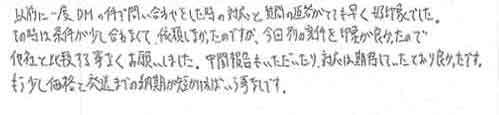 以前に一度DMの件で問い合わせをした時の対応と質問の返答がとても早く好印象でした。
その時は条件が少し合わなくて、依頼しなかったのですが、今回別の案件を印象が良かったので
他社と比較する事なくお願いしました。中間報告もいただいたり、対応は期待していたとおり良かったです。
もう少し価格と発送までの納期が短かければいう事なしです。